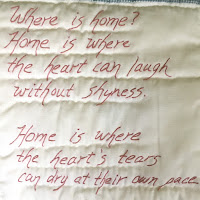 Where is home?
Home is where
the heart can laugh
without shyness.
Home is where
the heart's tears
can dry at their own pace